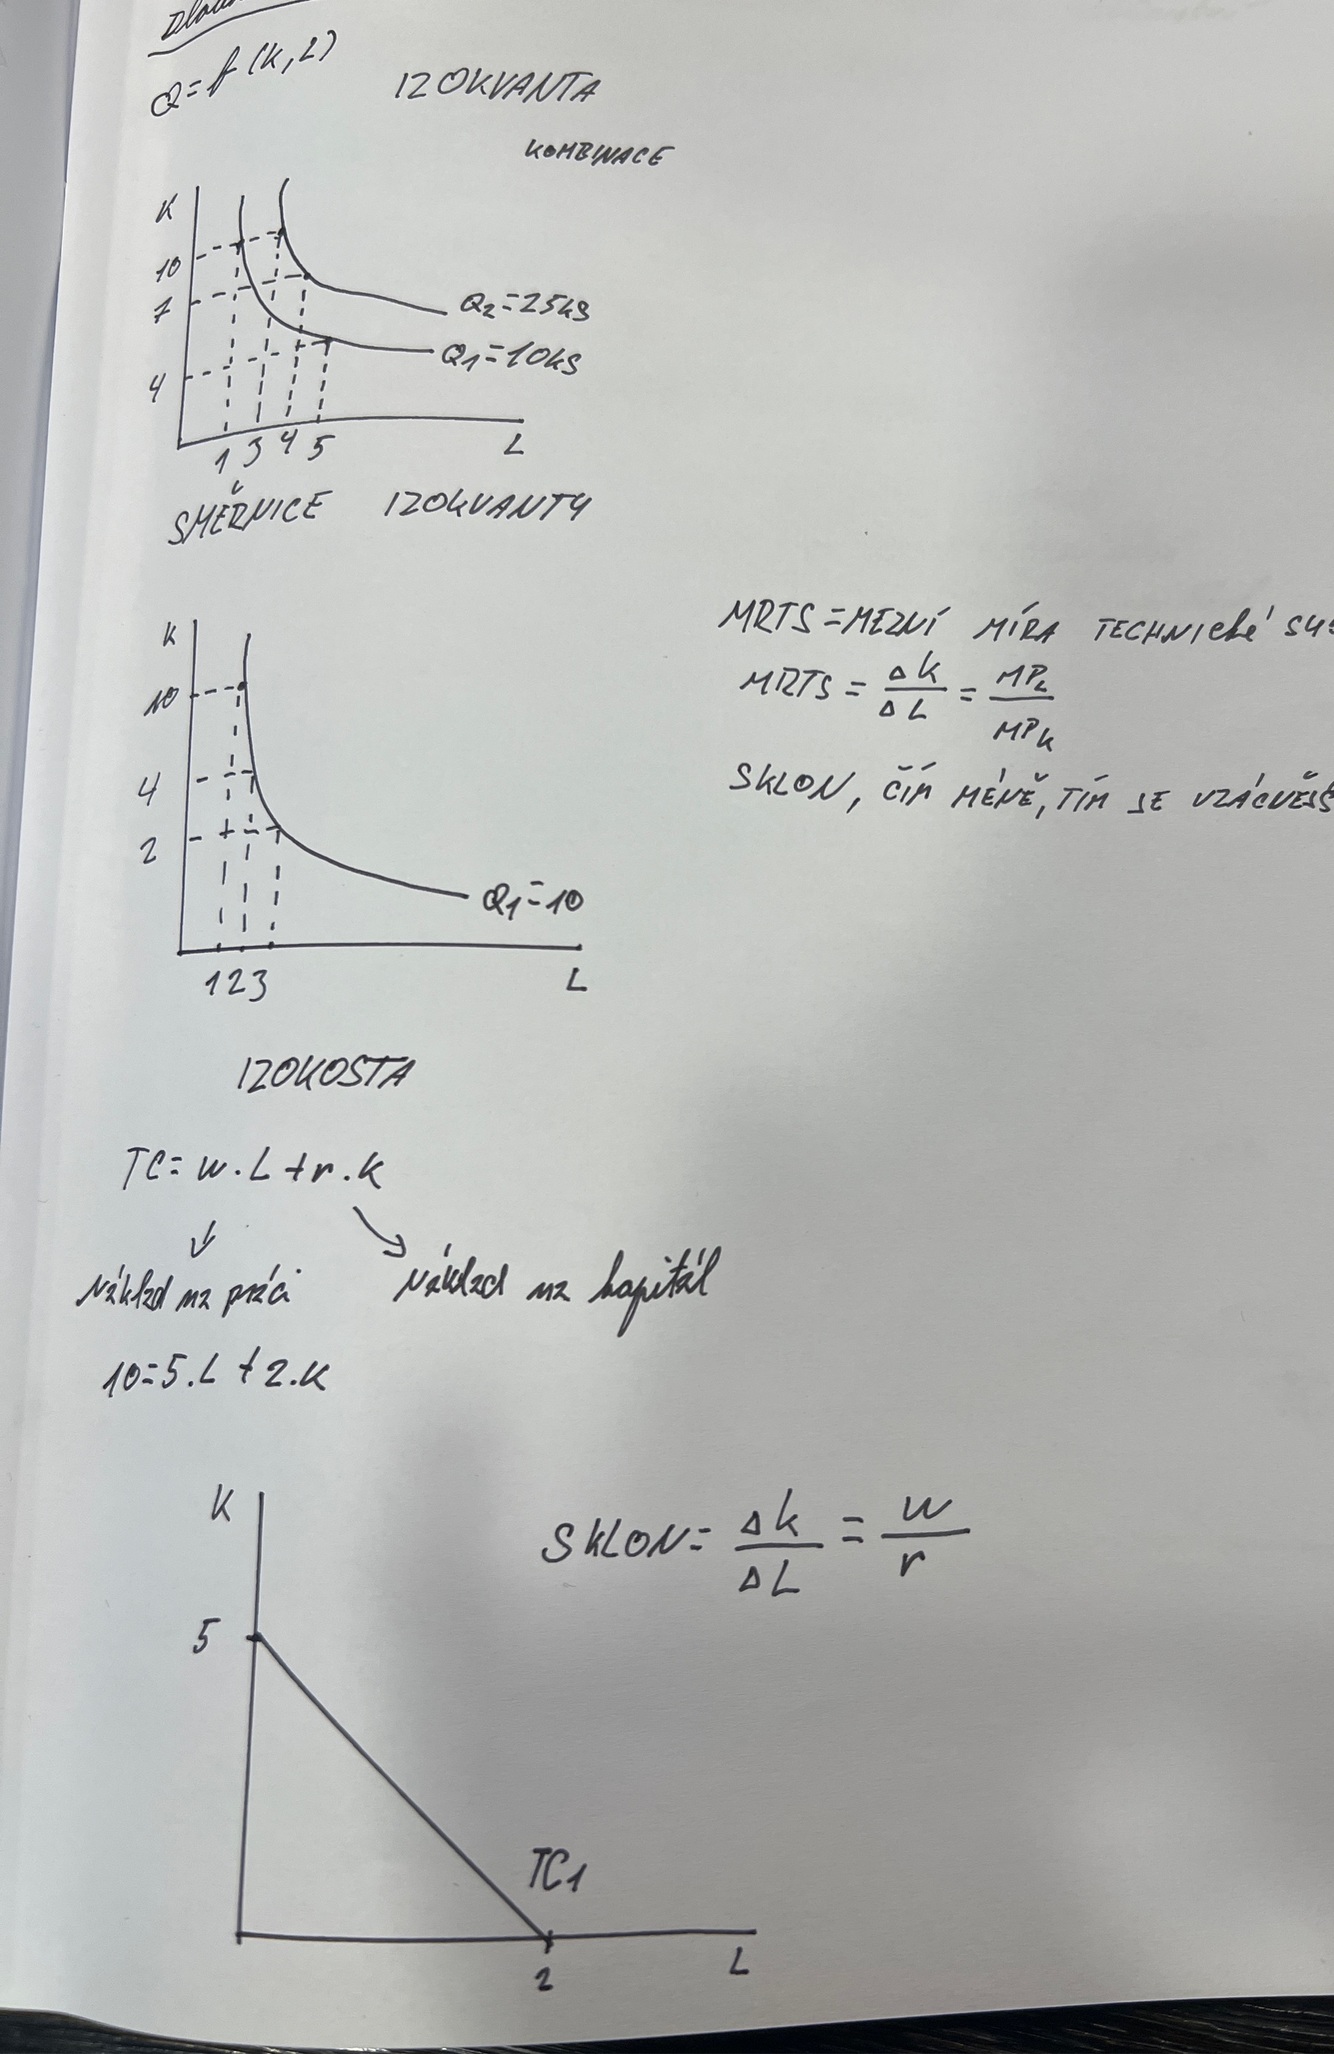 Q=f(K,L)
IZOKVANTA
KOMBINACE
K
10
7
4
Q2=25ks
Q1=10ks
1 3 4 5
L
SMĚRNICE IZOKVANTY
K
10
4
2
Q1=10
1 2 3
L
MRTS=MEZNÍ MÍRA TECHNICKÉ
MRTS = ΔK/ΔL = MPL/MPK
SKLON, ČÍM MÉNĚ, TÍM SE
IZOKOSTA
TC= w.L+r.K
Náklad na práci
Náklad na kapitál
10=5.L+2.K
K
5
SKLON= ΔK/ΔL = w/r
TC1
2
L